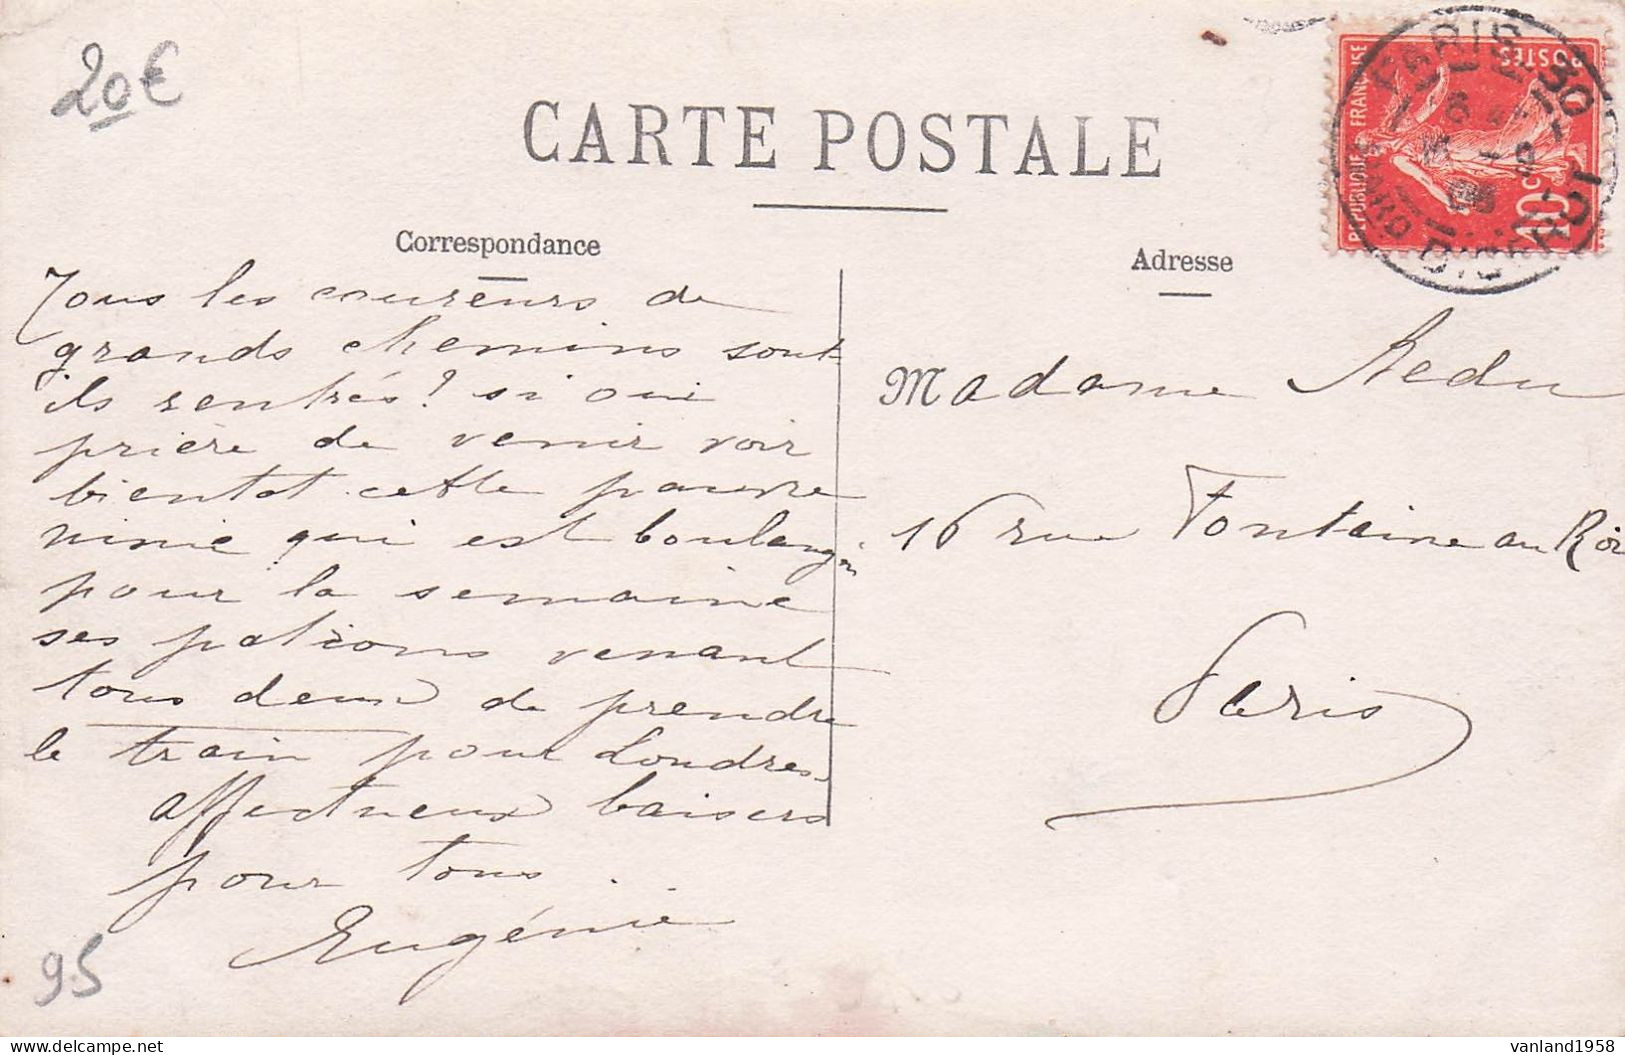 20€
CARTE POSTALE
Correspondance
Tous les coureurs de
grands chemins sont
ils rentrés? si oui
prière de venir voir
bientot cette pauvre
ninie qui est boulangère
pour la semaine
ses patrons venant
tous deux de prendre
le train pour Londres.
affectueux baisers
pour tous.
Eugénie
95
REPUBLIQUE FRANÇAISE
POSTES
10c
PARIS 30
Adresse
Madame Redu
16 rue Fontaine au Roi
Paris
vanland1958